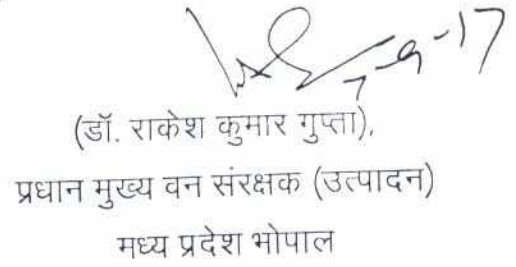 7-9-17
(डॉ. राकेश कुमार गुप्ता),
प्रधान मुख्य वन संरक्षक (उत्पादन)
मध्य प्रदेश भोपाल